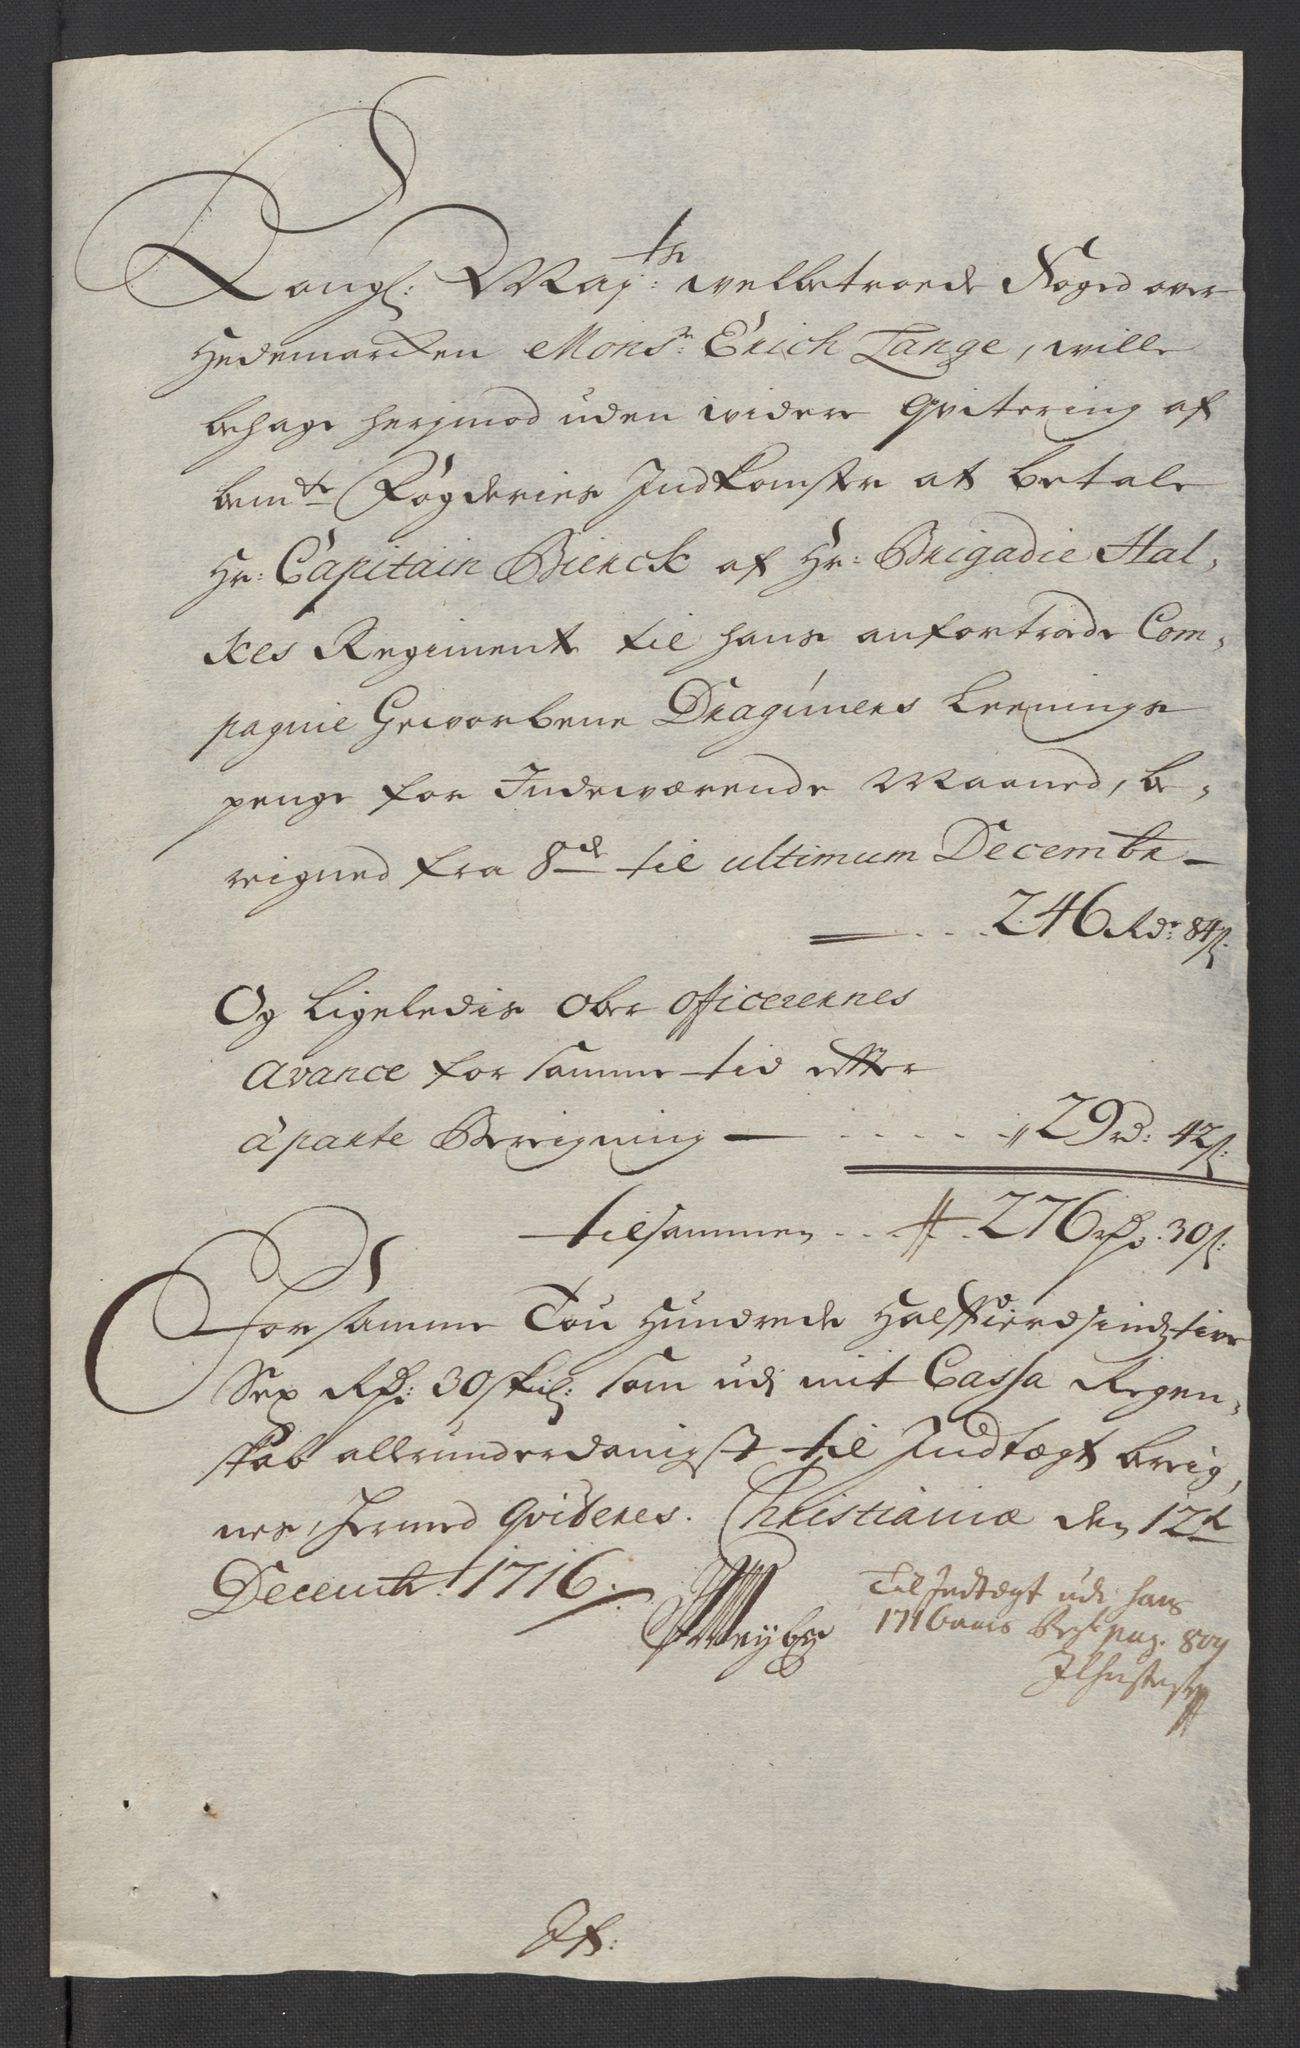 Kongl: Maj:ts welbetroede Foged over
Hedemarcken Mons:r Erich Lange, wille
behage herjmod uden widere qvitering af
bem:te Fögderies Indkomster at betale
Hr: Capitain Bierck af Hr: Brigadie Hal-
kes Regiment til hans anfortroede Com-
pagnie Geworbene Dragùners Leenings
penge for Indeværende Maaned, be-
reigned fra 8de til ultimum Decembr
246 Rdr 84ß.
Og Ligeledis Ober Officerernes
Avance for samme tid efter
à parte Bereigning 29 rd: 42ß:
tilsammen 276 rdr. 30ß:
For samme Tou Hundrede Halffierdsindztive
Sex Rdr: 30 skil: som udj mit Cassa Regen-
skab allerunderdanigst til Indtægt bereig-
nes, hermed qviteres. Christianiæ den 12te
Decembr: 1716.
Til Indtægt udj hans
1716 aars Regsk pag. 809